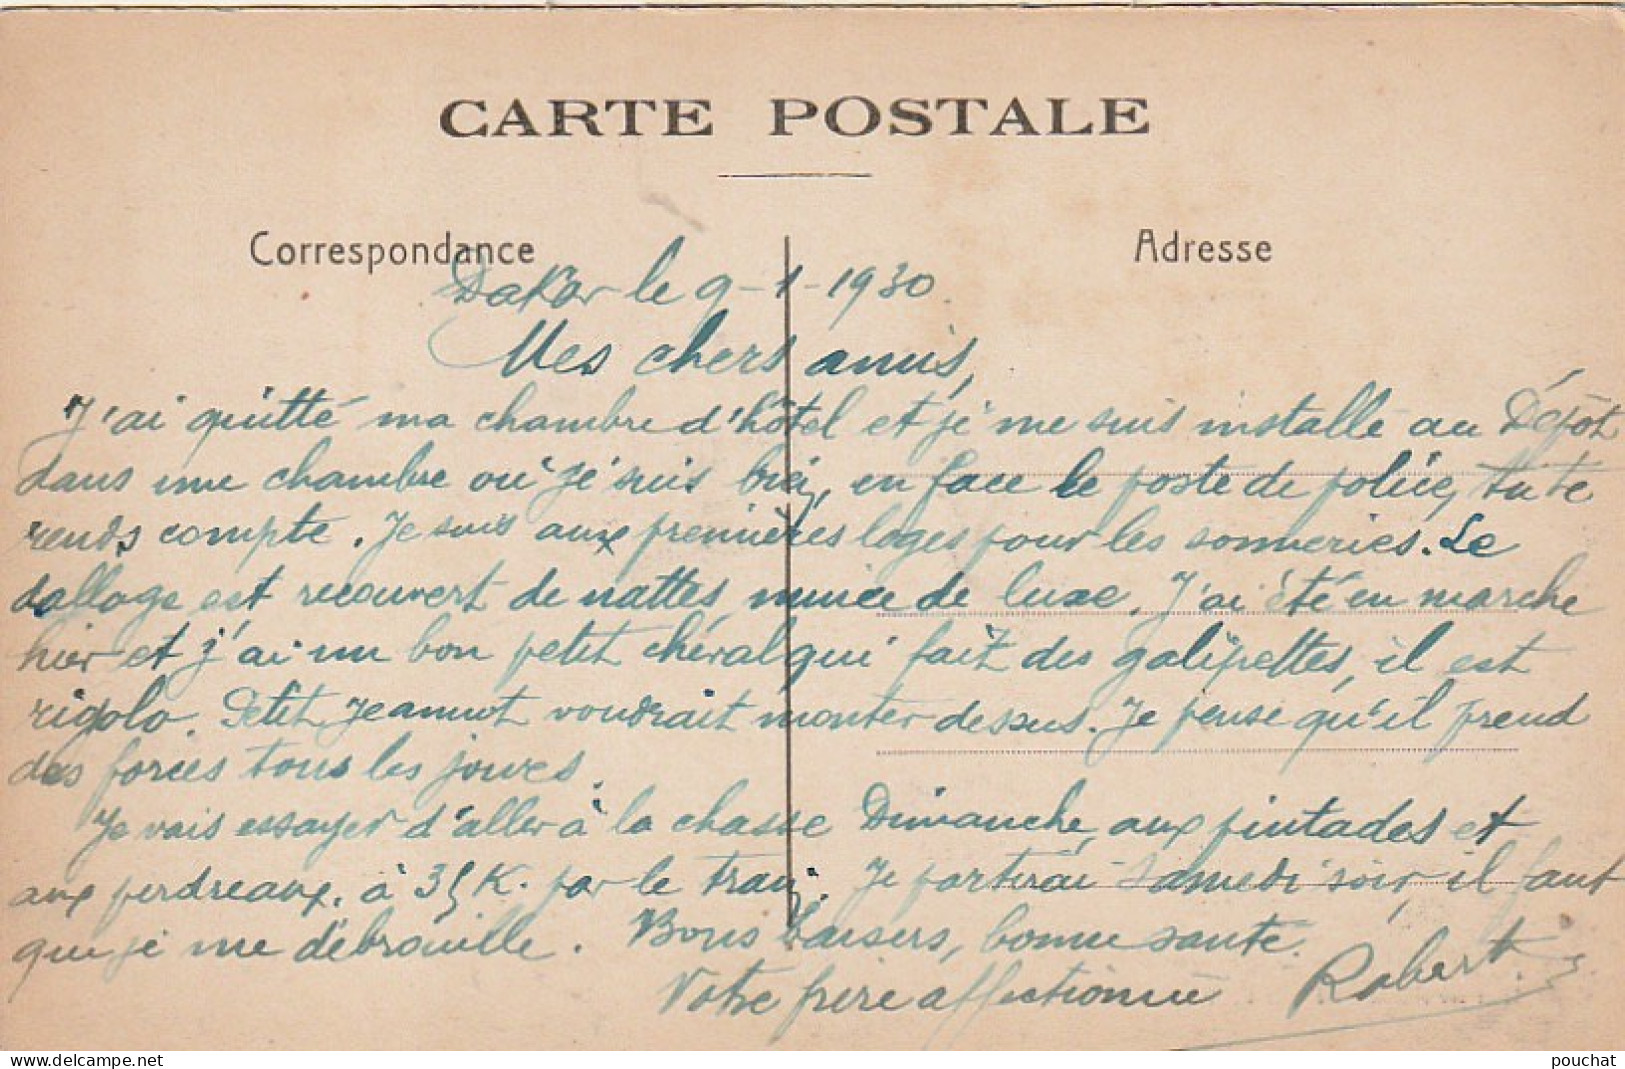 CARTE POSTALE
Correspondance
Adresse
Dakar le 9-1-1930
Mes chers amis,
J'ai quitté ma chambre d'hôtel et je me suis installé au Dépôt
dans une chambre où je suis bien, en face le poste de police, tu te
rends compte. Je suis aux premières loges pour les sonneries. Le
dallage est recouvert de nattes, mince de luxe. J'ai été en marche
hier et j'ai un bon petit cheval qui fait des galipettes, il est
rigolo. Petit Jeannot voudrait monter dessus. Je pense qu'il prend
des forces tous les jours.
Je vais essayer d'aller à la chasse Dimanche, aux pintades et
aux perdreaux. à 35 K. par le train. Je partirai Samedi soir, il faut
que je me débrouille. Bons baisers, bonne santé.
Votre frère affectionné Robert.
delcampe.net
pouchat